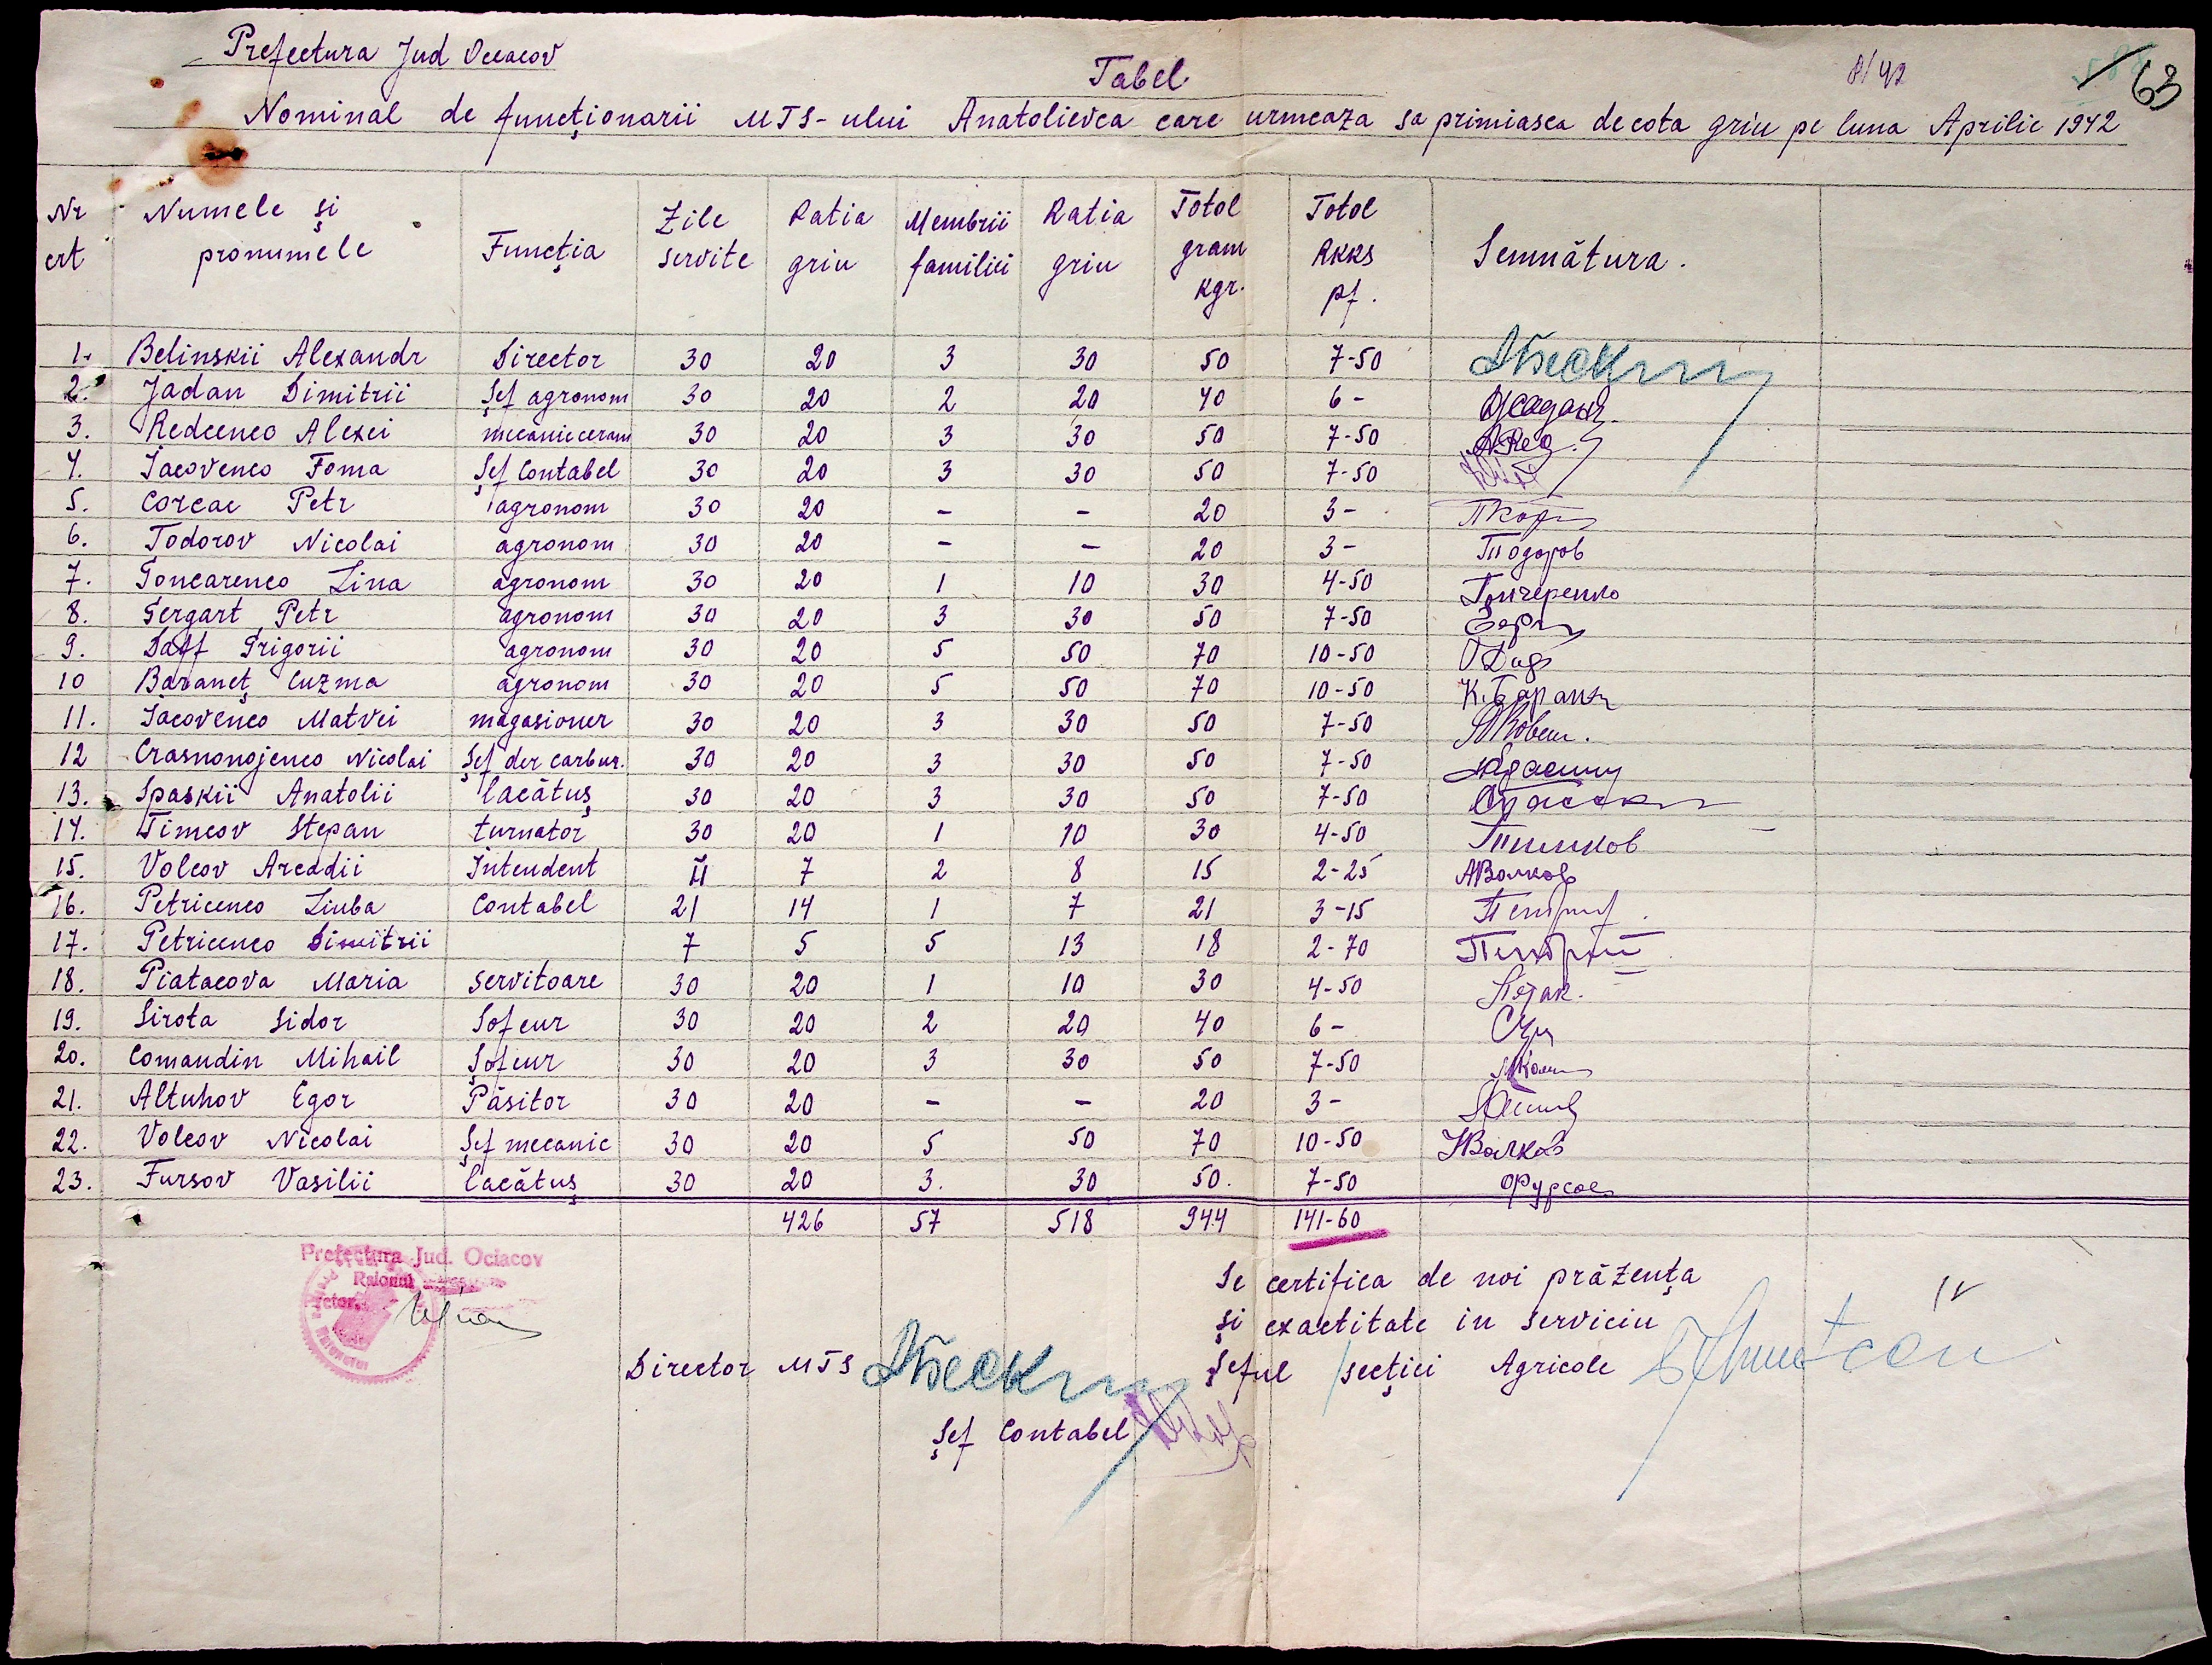 Prefectura Jud Oceacov
Tabel
8/42
63
Nominal de funcţionarii MTS-ului Anatolievca care urmeaza sa primiasca de cota griu pe luna Aprilie 1942
Nr crt Numele şi pronumele Funcţia Zile servite Ratia griu Membrii familiei Ratia griu Totol gram kgr. Totol RKKS pf. Semnătura.
1. Belinskii Alexandr Director 30 20 3 30 50 7-50
2. Jadan Dimitrii Şef agronom 30 20 2 20 40 6- Жадан
3. Redcenco Alexei mecanic ceram 30 20 3 30 50 7-50 АРед.
4. Jacovenco Foma Şef Contabel 30 20 3 30 50 7-50
5. Corcac Petr agronom 30 20 - - 20 3- ПКор
6. Todorov Nicolai agronom 30 20 - - 20 3- Тодоров
7. Goncarenco Zina agronom 30 20 1 10 30 4-50 Гончеренко
8. Gergart Petr agronom 30 20 3 30 50 7-50
9. Daff Grigorii agronom 30 20 5 50 70 10-50
10 Baraneţ Cuzma agronom 30 20 5 50 70 10-50 К.Баранец
11. Jacovenco Matvei magasioner 30 20 3 30 50 7-50
12 Crasnonojenco Nicolai Şef der carbur. 30 20 3 30 50 7-50
13. Spaskii Anatolii lacătuş 30 20 3 30 50 7-50 Спасски
14. Timcov Stepan turnator 30 20 1 10 30 4-50 Тимков
15. Volcov Arcadii Intendent 11 7 2 8 15 2-25 АВолков
16. Petricenco Liuba Contabel 21 14 1 7 21 3-15
17. Petricenco Dimitrii 7 5 5 13 18 2-70
18. Piatacova Maria servitoare 30 20 1 10 30 4-50 Пятак.
19. Sirota Sidor Sofeur 30 20 2 20 40 6-
20. Comandin Mihail Şofeur 30 20 3 30 50 7-50 МКом
21. Altuhov Egor Păsitor 30 20 - - 20 3-
22. Volcov Nicolai Şef mecanic 30 20 5 50 70 10-50 НВолков
23. Fursov Vasilii lacătuş 30 20 3. 30 50. 7-50 Фурсов
426 57 518 944 141-60
Prefectura Jud. Ociacov
Raionul
Pretor
Se certifica de noi prăzenţa
şi exactitate in serviciu
Director MTS
Şeful secţiei Agricole
Şef Contabel